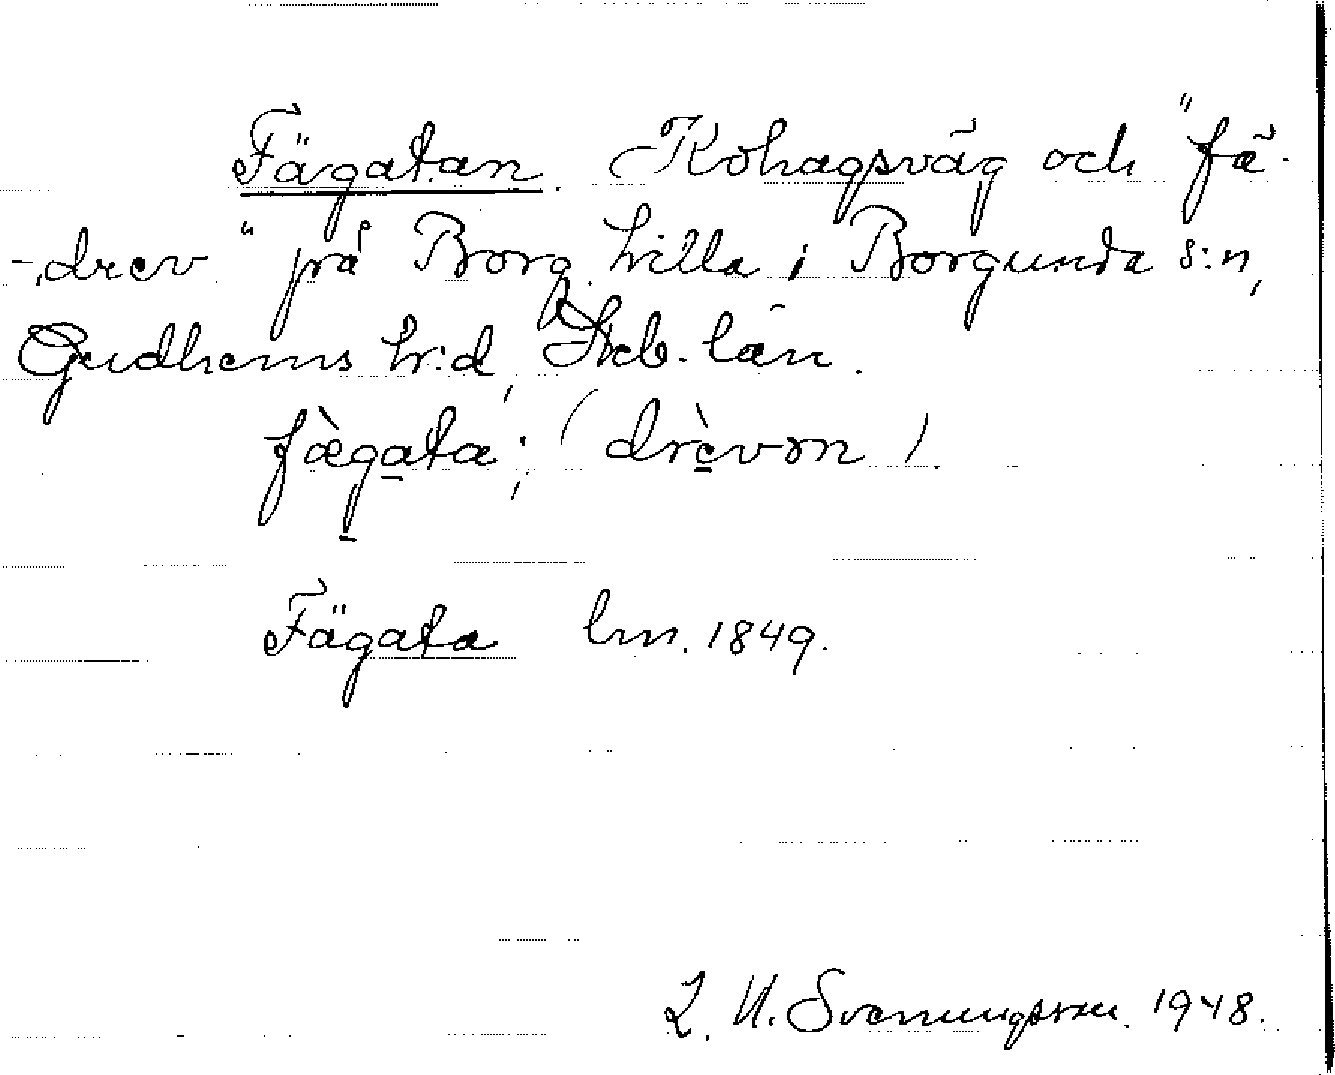 Fägatan. Kohagsväg och "fä-
-drev" på Borg. hilla i Borgunda s:n,
Gudhems hr:d, Skb. län.
fæ̀gata; (drèvən).
Fägata lm. 1849.
L. N. Svenungsson. 1948.